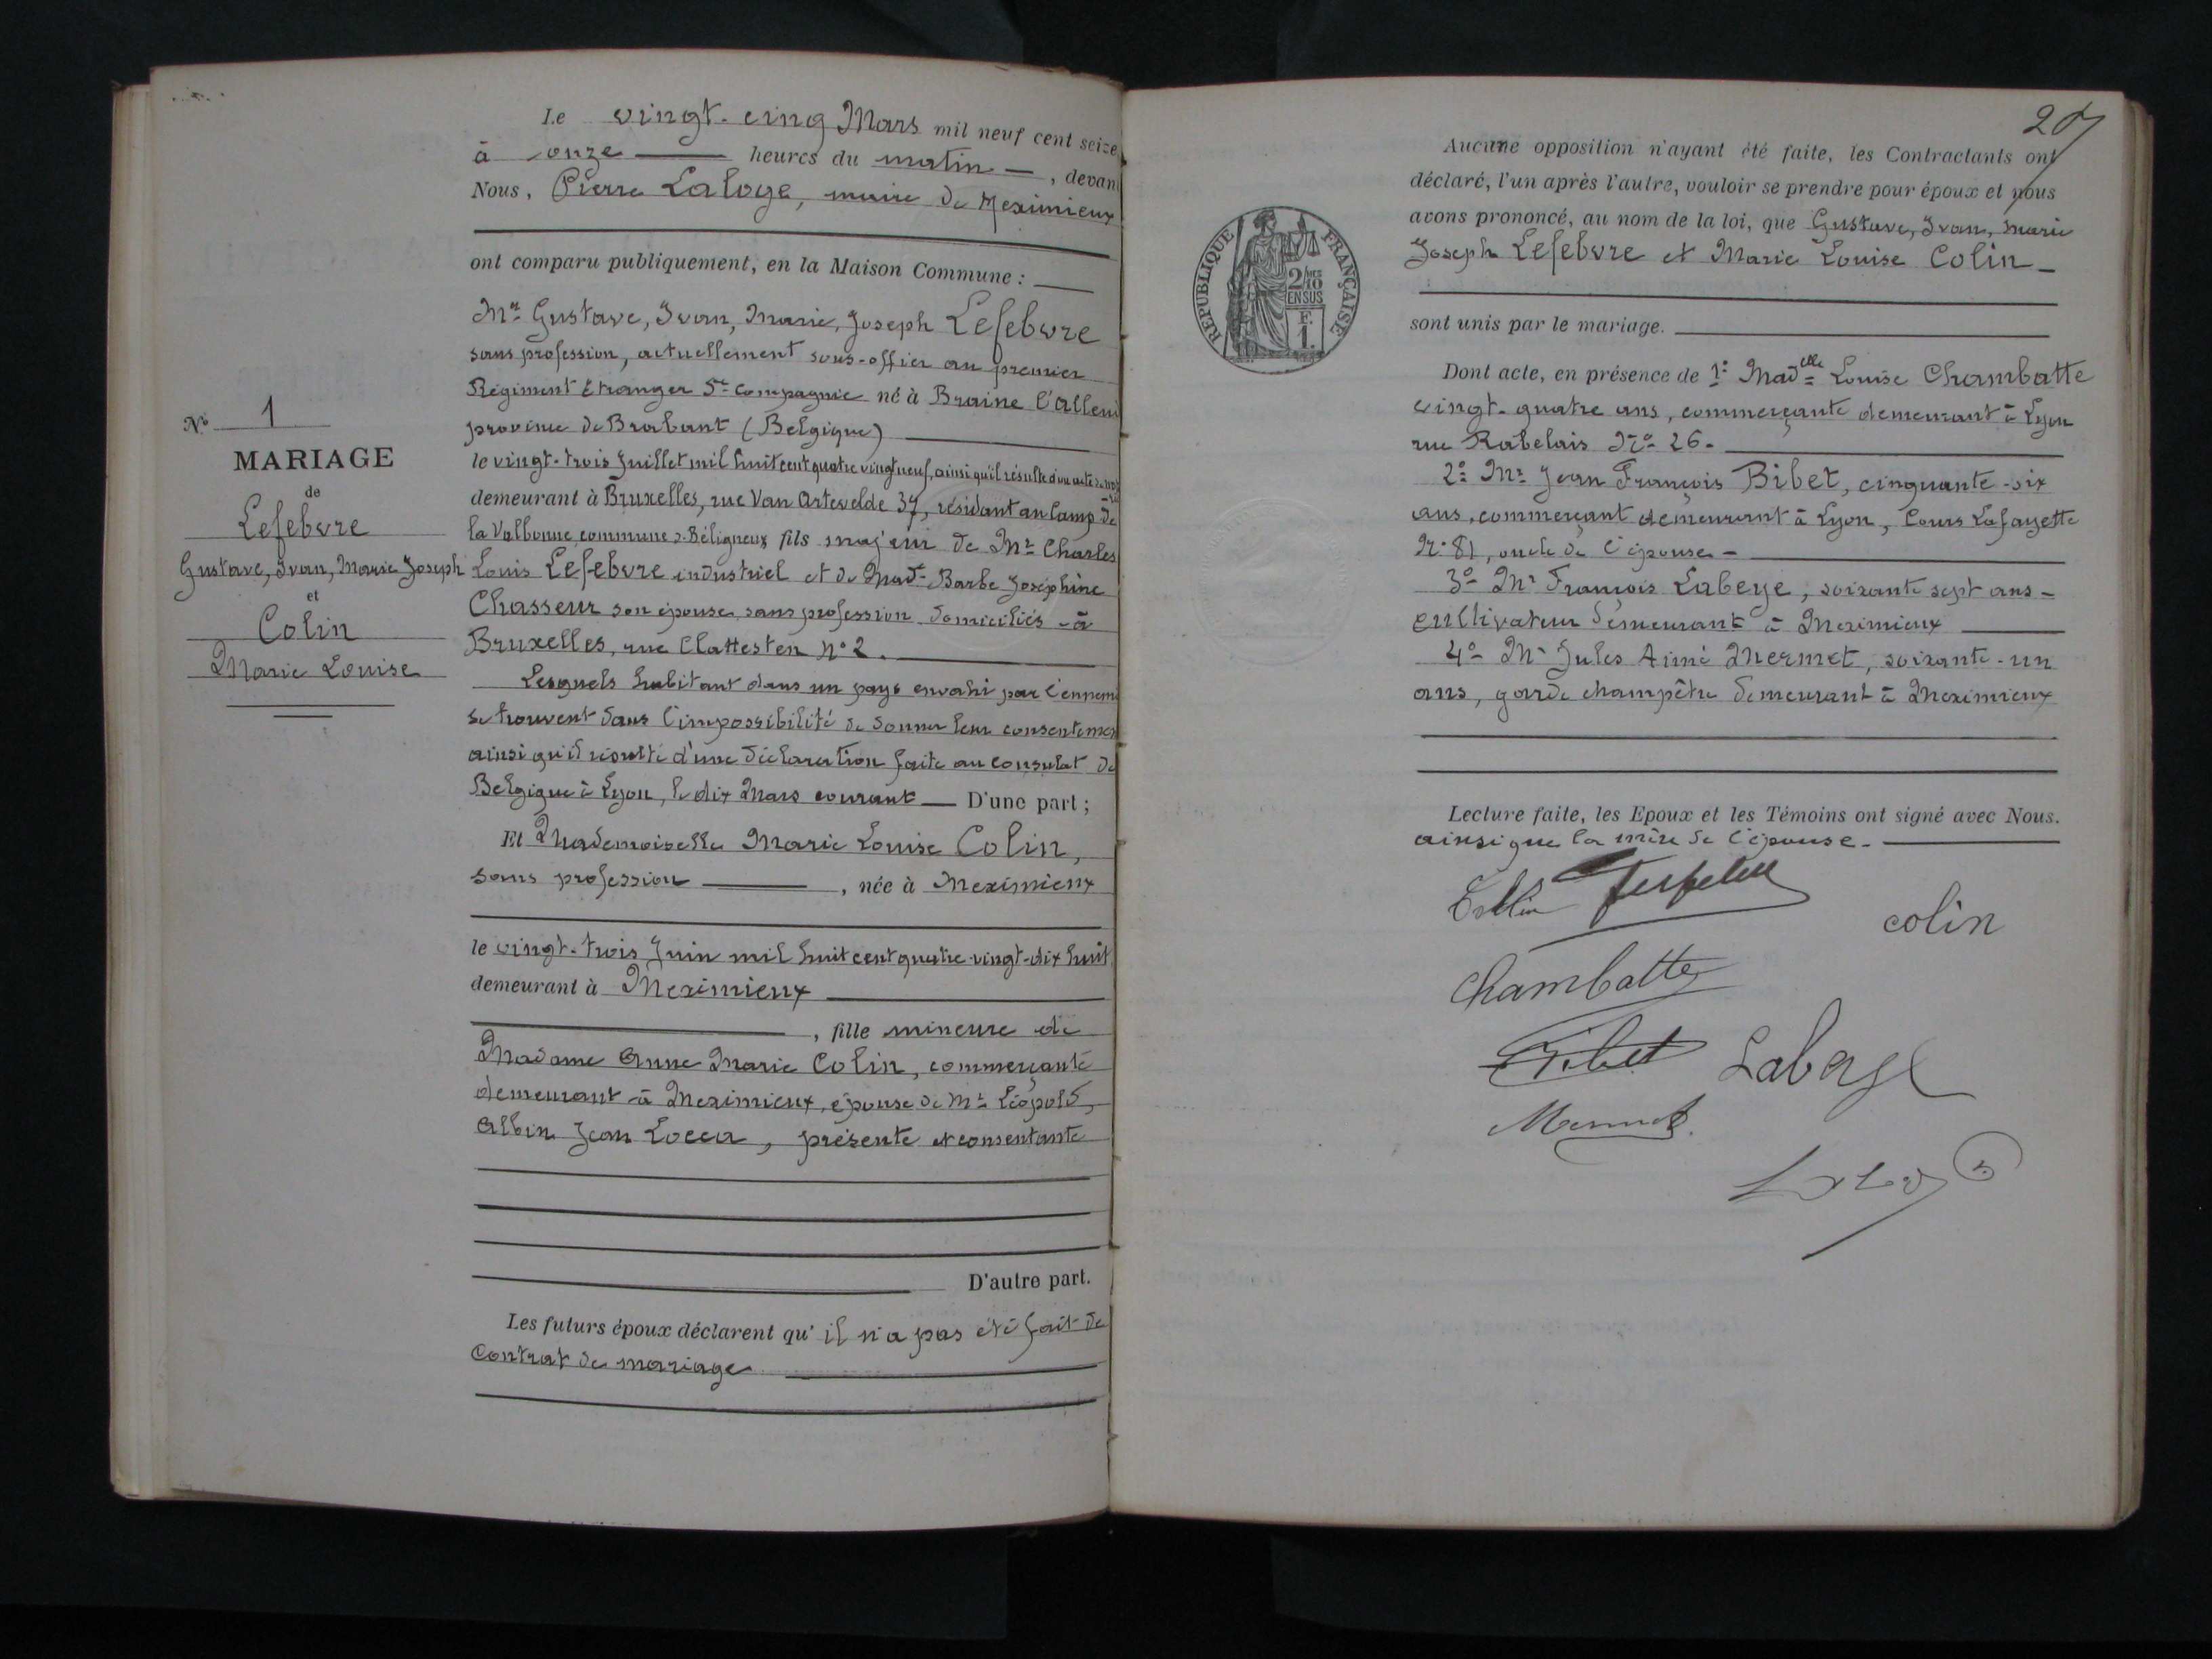 Le vingt-cinq Mars mil neuf cent seize
à onze heures du matin, devant
Nous, Pierre Laloge, maire de Meximieux
ont comparu publiquement, en la Maison Commune :
Mr Gustave, Ivan, Marie, Joseph Lefebvre
sans profession, actuellement sous-offier au premier
Régiment Etranger 5e Compagnie né à Braine l'Alleud
province de Brabant (Belgique)
le vingt-trois Juillet mil huit cent quatre vingt neuf, ainsi qu'il résulte d'un acte de
demeurant à Bruxelles, rue Van Artevelde 37, résidant au Camp de
la Valbonne, commune de Béligneux fils majeur de Mr Charles
Louis Lefebvre industriel et de Made Barbe Joséphine
Chasseur son épouse, sans profession domiciliés à
Bruxelles, rue Clattesten No 2.
Lesquels habitant dans un pays envahi par l'ennemi
se trouvent dans l'impossibilité de donner leur consentement
ainsi qu'il résulte d'une déclaration faite au Consulat de
Belgique à Lyon, le dix Mars courant D'une part ;
Et Mademoiselle Marie Louise Colin,
sans profession, née à Meximieux
le vingt-trois Juin mil huit cent quatre-vingt-dix huit,
demeurant à Meximieux
, fille mineure de
Madame Anne Marie Colin, commerçante
demeurant à Meximieux, épouse de Mr Léopold,
Albin Jean Locca, présente et consentante
D'autre part.
Les futurs époux déclarent qu'il n'a pas été fait de
Contrat de mariage
No 1
MARIAGE
de
Lefebvre
Gustave, Ivan, Marie Joseph
et
Colin
Marie Louise
Aucune opposition n'ayant été faite, les Contractants ont
déclaré, l'un après l'autre, vouloir se prendre pour époux et nous
avons prononcé, au nom de la loi, que Gustave, Ivan, Marie
Joseph Lefebvre et Marie Louise Colin
sont unis par le mariage.
Dont acte, en présence de 1o Madelle Louise Chambatte
vingt-quatre ans, commerçante demeurant à Lyon
rue Rabelais No 26.
2o Mr Jean François Bibet, cinquante-six
ans, commerçant demeurant à Lyon, Cours Lafayette
No 81, oncle de l'épouse
3o Mr François Labeye, soixante sept ans
cultivateur demeurant à Meximieux
4o Mr Jules Aimé Mermet, soixante-un
ans, garde champêtre demeurant à Meximieux
Lecture faite, les Epoux et les Témoins ont signé avec Nous.
ainsi que la mère de l'épouse.
colin
Chambatte
Bibet Labeye
Mermet
REPUBLIQUE FRANÇAISE
2/10 MES
EN SUS
F.
1.